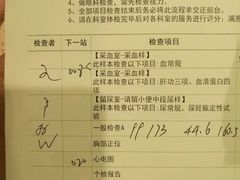 4. 做眼科检查，需先检查视力。
5. 全部项目检查结束后务必将此流程单交还前台。
6. 请在科室体检完毕后对各科室的服务进行评分：满意
检查者 下一站 检查项目
【采血室-采血样】
此样本检查以下项目：血常规
【采血室-采血样】
此样本检查以下项目：肝功三项、血清蛋白四项
【留尿室-请留小便中段尿样】
此样本检查以下项目：尿常规、尿妊娠定性试验
一般检查A 99 173 44.6 160.5
胸部正位
心电图
个检报告